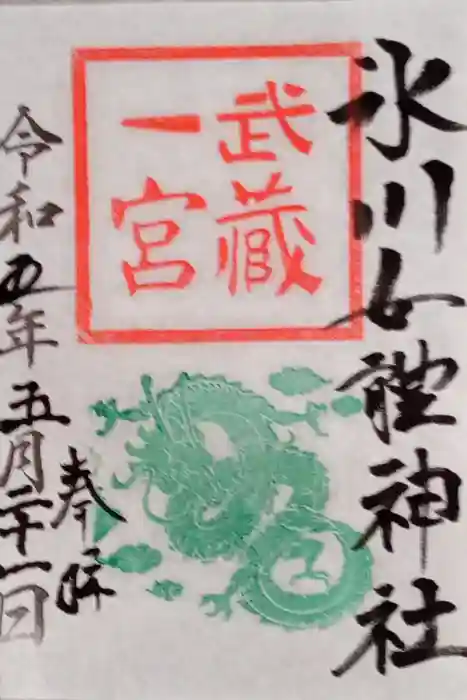 氷川女體神社
武蔵
一宮
奉拝
令和五年五月二十一日